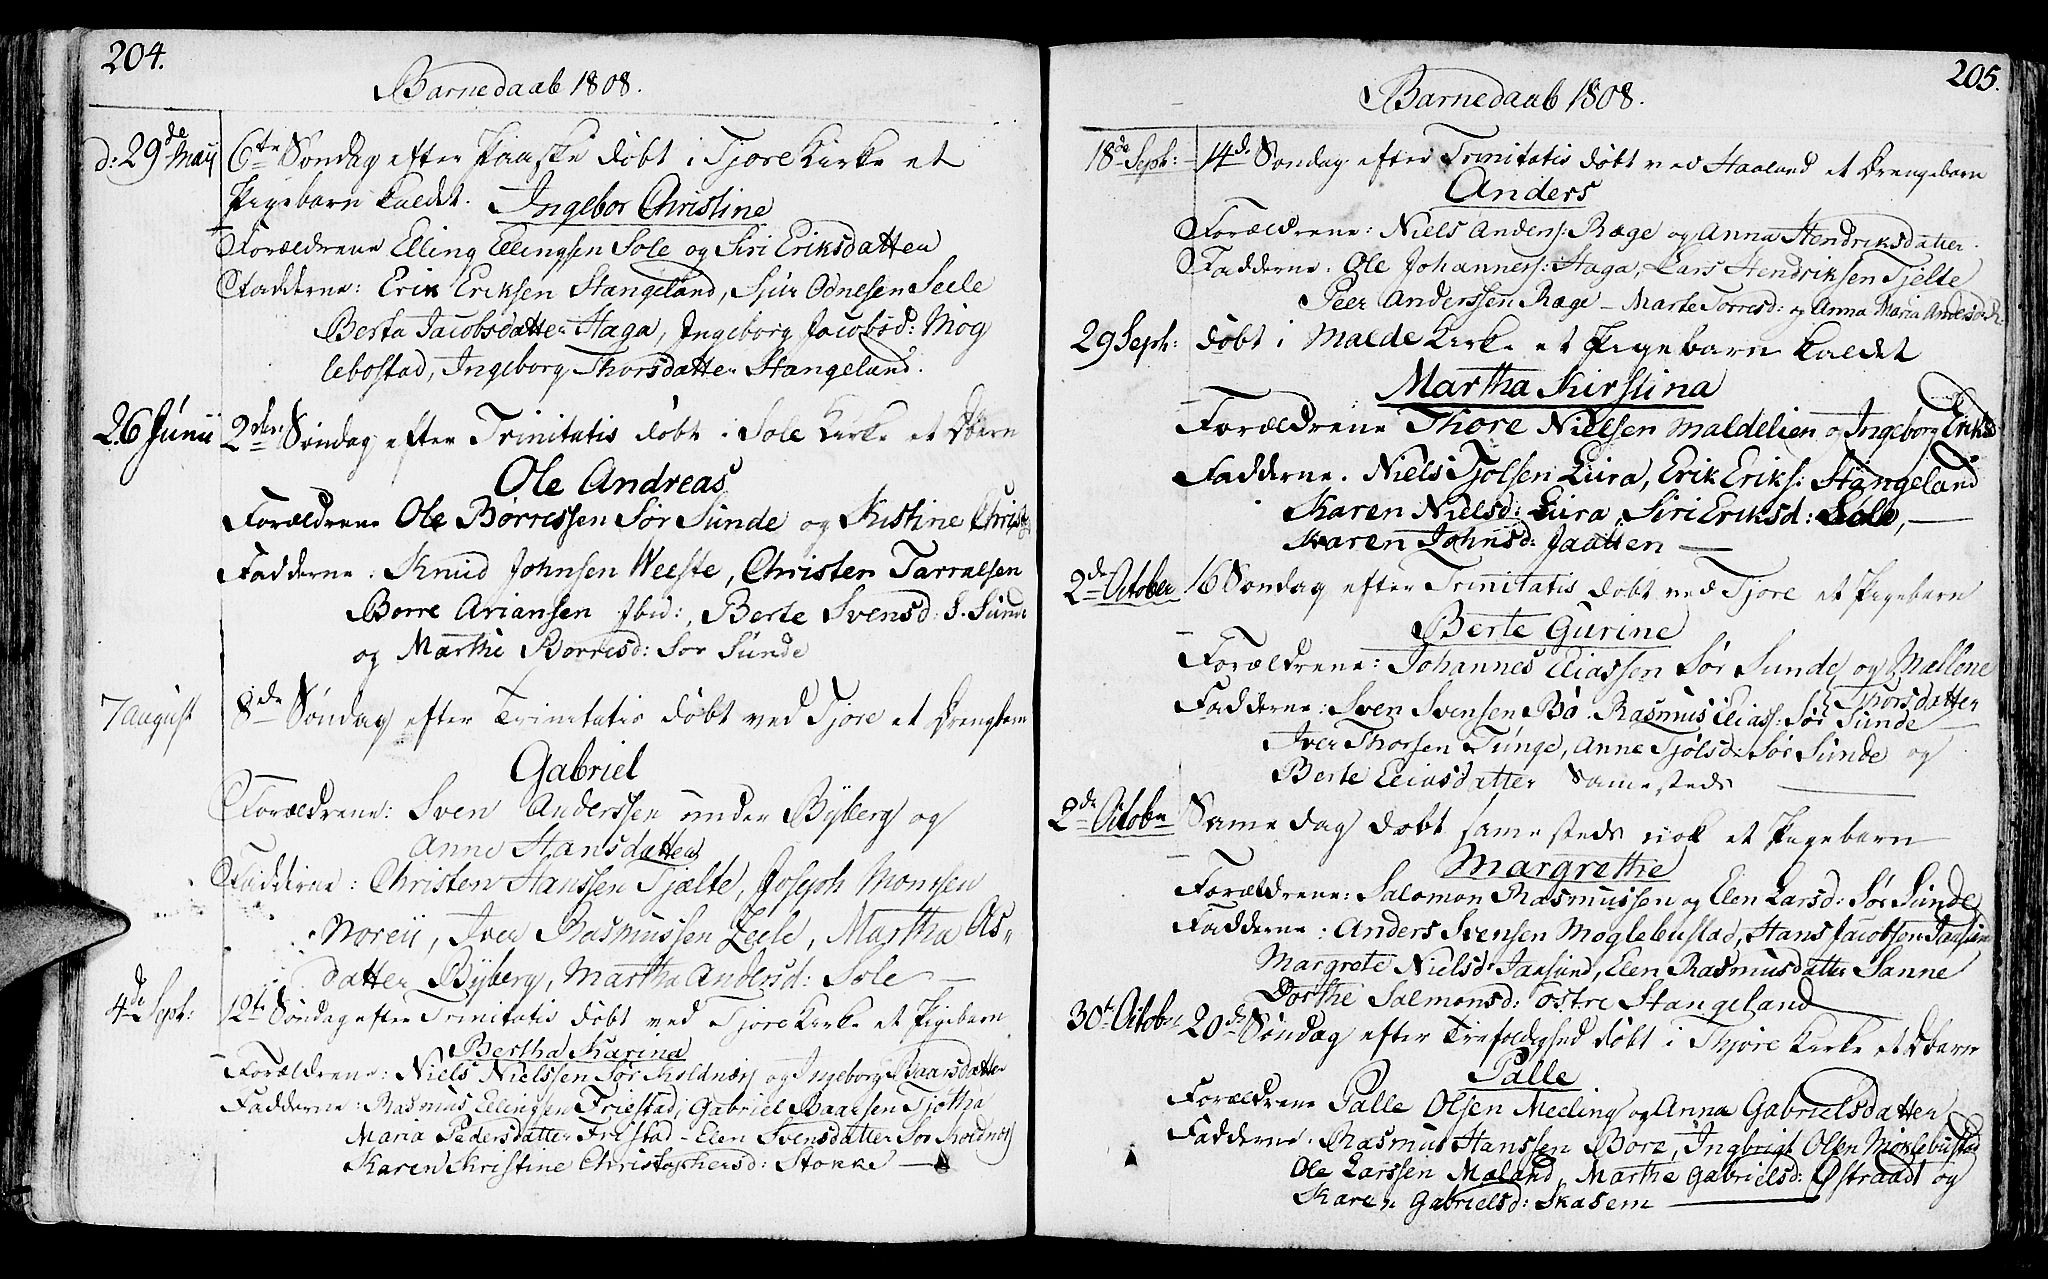 204.
Barnedaab 1808.
d: 29de Maij 6te Søndag efter Paaske døbt i Tjore Kirke et
Pigebarn kaldet. Ingebor Christine
Forældrene Elling Ellingsen Sole og Siri Eriksdatter
Fadderne: Erik Eriksen Stangeland, Sjur Odnesen Seele
Berta Jacobsdatter Haga, Ingeborg Jacobsd: Møg
lebostad, Ingeborg Thorsdatter Stangeland.
26 Junii 2den Søndag efter Trinitatis døbt i Sole Kirke et Dbarn
Ole Andreas
Forældrene Ole Børressen Sør Sunde og Kistine
Fadderne: Knud Johnsen Weeste, Christen Tarralsen
Børre Ariansen Ibid:, Berte Svensd: S. Sunde
og Marthe Børresd: Sør Sunde
7 august 8de Søndag efter Trinitatis døbt ved Tjore et Drengebarn
Gabriel
Forældrene: Sven Anderssen under Byberg og
Anne Hansdatter
Fadderne: Christen Hanssen Tjælte, Joseph Monsen
Noreii, Iver Rasmussen Zeele, Martha As„
datter Byberg, Martha Andersd: Sole —
4de Sept: 12te Søndag efter Trinitatis døbt ved Tjore Kirke et Pigebarn
Bertha Karina
Forældrene: Niels Nielssen Sør Koldnæs og Ingeborg Baarsdatter
Fadderne: Rasmus Ellingsen Friestad, Gabriel Baarsen Tjøtha
Maria Pedersdatter Frestad – Elen Svensdatter Sør Koldnæs
Karen Kristine Christophersd: Stokke —
205.
Barnedaab 1808.
18de Sept: 14de Søndag efter Trinitatis døbt ved Haaland et Drengebarn
Anders
Forældrene: Niels Anders: Ræge og Anna Hendriksdatter.
Fadderne: Ole Johanness: Haga, Lars Hendriksen Tjelte
Peer Anderssen Ræge – Marte Torresd: og Anna Maria Andersd:
29 Sept: døbt i Malde Kirke et Pigebarn kaldet
Martha Kirstina
Forældrene Thore Nielsen Maldelien og Ingeborg Eriksd
Fadderne. Niels Tjølsen Lura, Erik Eriks: Stangeland
Karen Nielsd: Lura, Siri Eriksd: Sole, —
Karen Johnsd: Jaatten —
2de October 16 Søndag efter Trinitatis døbt ved Tjore et Pigebarn
Berte Gurine
Forældrene: Johannes Eliassen Sør Sunde og Mallene
Thorsdatter
Fadderne: Sven Svensen Bø. Rasmus Eliass: Sør Sunde
Iver Thorsen Tunge, Anne Tjølsd: Sør Sunde og
Berte Eliasdatter Samesteds
2de Octobr Samme dag døbt sammesteds nok et Pigebarn
Margrethe
Forældrene: Salomon Rasmussen og Elen Larsd: Sør Sunde
Fadderne: Anders Svensen Møglebustad, Hans Jacobsen Jaasund
Margrete Nielsd: Jaasund, Elen Rasmusdatter Sanne
Dorthe Salmonsd: østre Stangeland
30te Octobr 20de Søndag efter Trefoldighed døbt i Thjore Kirke et Dbarn
Palle
Forældrene Palle Olsen Meeling og Anna Gabrielsdatter
Fadderne: Rasmus Hanssen Bore, Ingbrigt Olsen Møklebustad
Ole Larssen Mæland, Marthe Gabrielsd: Østraadt og
Karen Gabrielsd: Skasem —